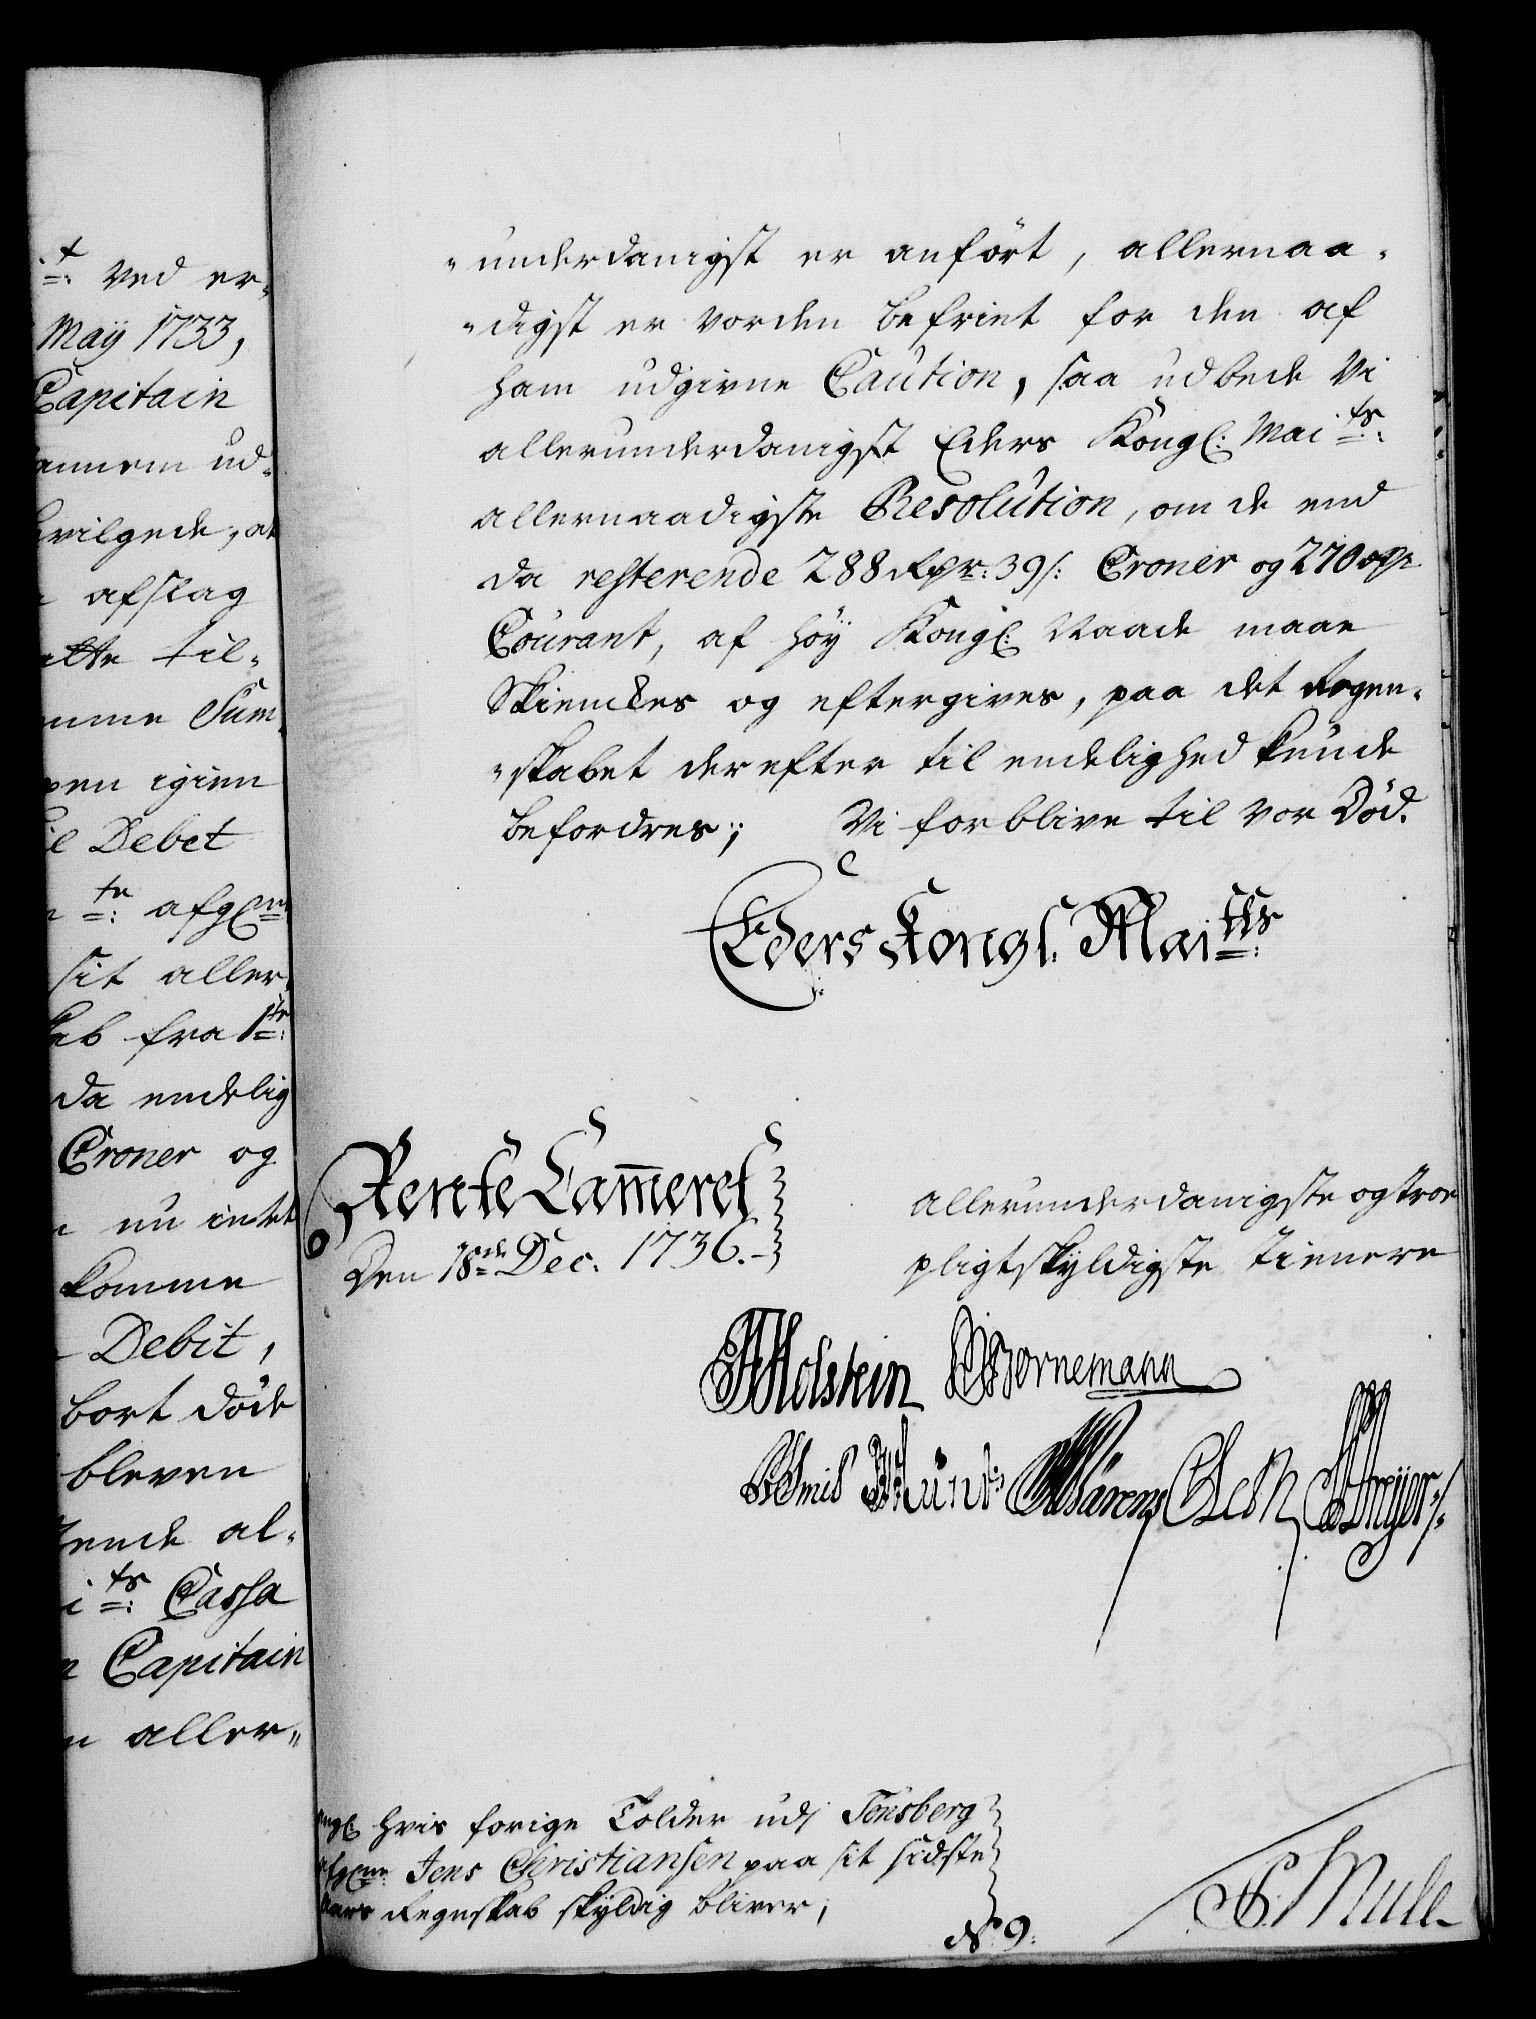 t: ved er-
May 1733,
Capitain
ennem ud-
bevilgede, at
afslag
ette til-
mme Sum,
pen igien
il Debet
te: afgl:
sit aller,
kab fra 1te:
da endelig
Croner og
nu intet
komme
Debit,
bort døde
bleven
tende al-
i ts: Cassa
n Capitain
n aller-
-underdanigst er anført, allernaa-
-digst er vorden befriet for den af
ham udgivne Caution, saa udbede Vi
allerunderdanigst Eders Kongl: Mai ts:
allernaadigste Resolution, om de end
da resterende 288 Rdr: 39 s: Croner og 270 Rdr
Courant, af høy Kongl: Naade maae
Skienckes og eftergives, paa det Regen-
-skabet derefter til endelighed kunde
befordres; Vi forblive til vor Død.
Eders Kongl. Mai tts:
Rente Cammeret
Den 18de Dec: 1736.
allerunderdanigste og troe
pligtskyldigste tienere
Holstein Bornemann
Smid Munt Wärens Beck Dreyer
angl: hvis forige Tolder udj Tönsberg
afgl: Jens Christiansen paa sit sidste
Aars Regnskab skyldig bliver;
N 9:
Müll